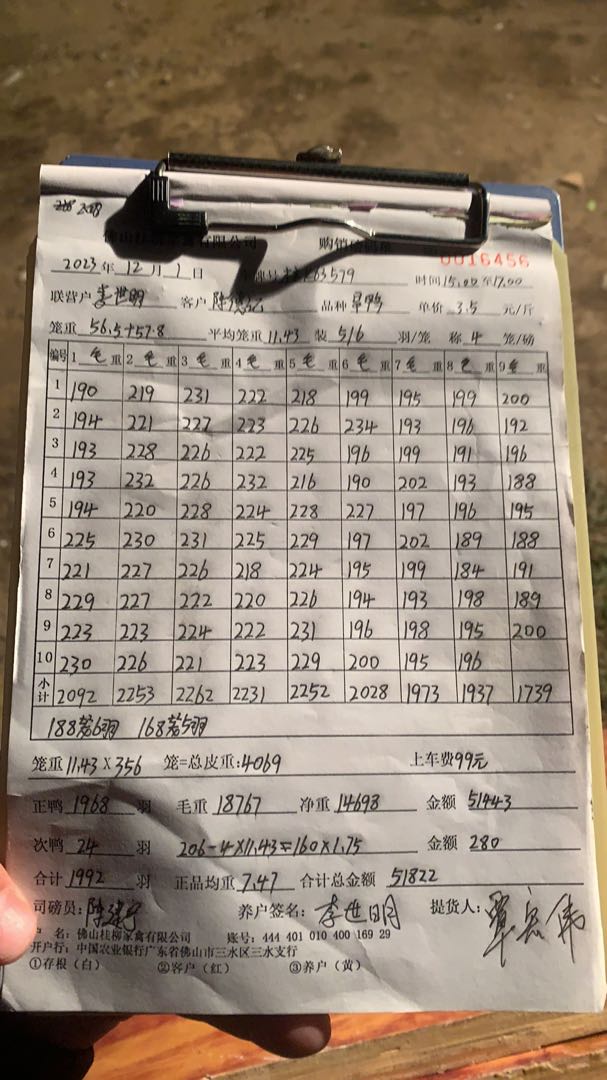 208
佛山桂柳家禽有限公司 购销码单
0016456
2023年12月1日 63579 时间15:00至17:00
联营户 李世明 客户 陈 品种 旱鸭 单价 3.5 元/斤
笼重 56.5+57.8 平均笼重 11.43 装 5/6 羽/笼 称 4 笼/磅
编号 1 毛 重 2 毛 重 3 毛 重 4 毛 重 5 毛 重 6 毛 重 7 毛 重 8 毛 重 9 毛 重
1 190 219 231 222 218 199 195 199 200
2 194 221 227 223 226 234 193 196 192
3 193 228 226 222 225 196 199 191 196
4 193 232 226 232 216 190 202 193 188
5 194 220 228 224 228 227 197 196 195
6 225 230 231 225 229 197 202 189 188
7 221 227 226 218 224 195 199 184 191
8 229 227 222 220 226 194 193 198 189
9 223 223 224 222 231 196 198 195 200
10 230 226 221 223 229 200 195 196
小计 2092 2253 2262 2231 2252 2028 1973 1937 1739
188笼6羽 168笼5羽
笼重 11.43 X 356 笼=总皮重:4069 上车费99元
正鸭 1968 羽 毛重 18767 净重 14698 金额 51443
次鸭 24 羽 206-4×11.43=160×1.75 金额 280
合计 1992 羽 正品均重 7.47 合计总金额 51822
司磅员: 陈建宁 养户签名: 李世明 提货人: 覃宏伟
户 名: 佛山桂柳家禽有限公司 账号: 444 401 010 400 169 29
开户行: 中国农业银行广东省佛山市三水区三水支行
①存根(白) ②客户(红) ③养户(黄)